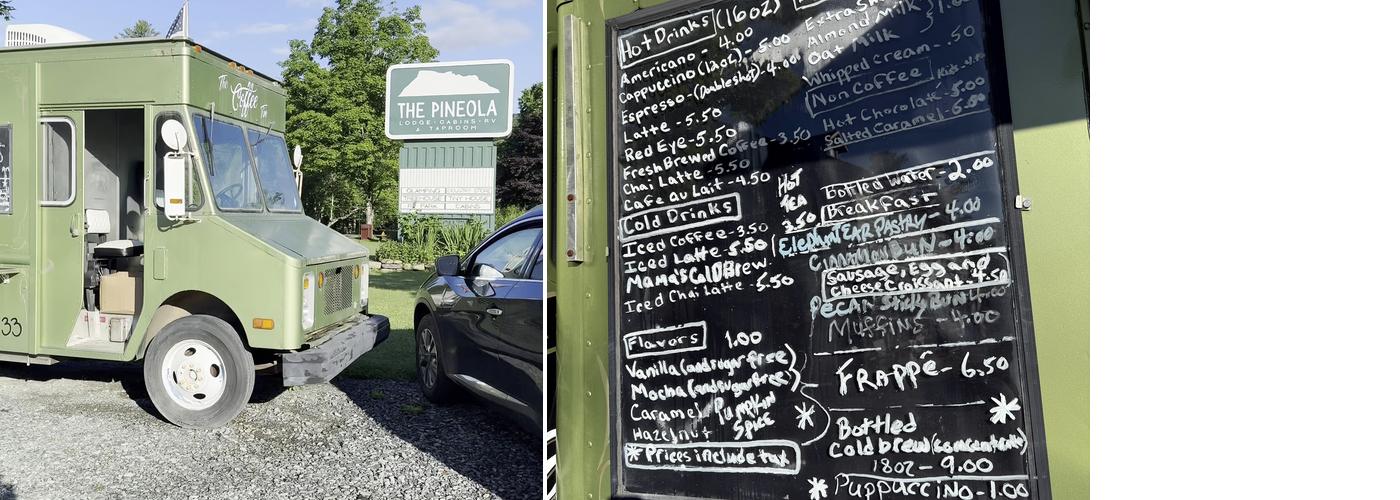 The
Coffee
33
THE PINEOLA
LODGE · CABINS · RV
& TAPROOM
Hot Drinks (16oz)
Americano 4.00
Cappuccino (12oz) - 5.00
Espresso - (Doubleshot) - 4.00
Latte - 5.50
Red Eye - 5.50
Fresh Brewed Coffee - 3.50
Chai Latte - 5.50
Cafe au Lait - 4.50
Cold Drinks
Iced Coffee - 3.50
Iced Latte - 5.50
Mama's Cold Brew
Iced Chai Latte - 5.50
Flavors 1.00
Vanilla (and sugar free)
Mocha (and sugar free)
Caramel Pumpkin
Hazelnut Spice
* Prices include tax
Extra Shot
Almond Milk 1.00
Oat Milk
Whipped Cream - .50
Non Coffee
Hot Chocolate - 5.00
Salted Caramel - 5.50
HOT
TEA
3.50
Bottled Water - 2.00
Breakfast
Elephant EAR PASTRY - 4.00
CINNAMON BUN - 4.00
Sausage, Egg and
Cheese Croissant - 4.50
PECAN Sticky BUN 4.00
Muffins - 4.00
FRAPPé - 6.50
Bottled
Cold brew (concentrate)
18oz - 9.00
* Puppuccino - 1.00